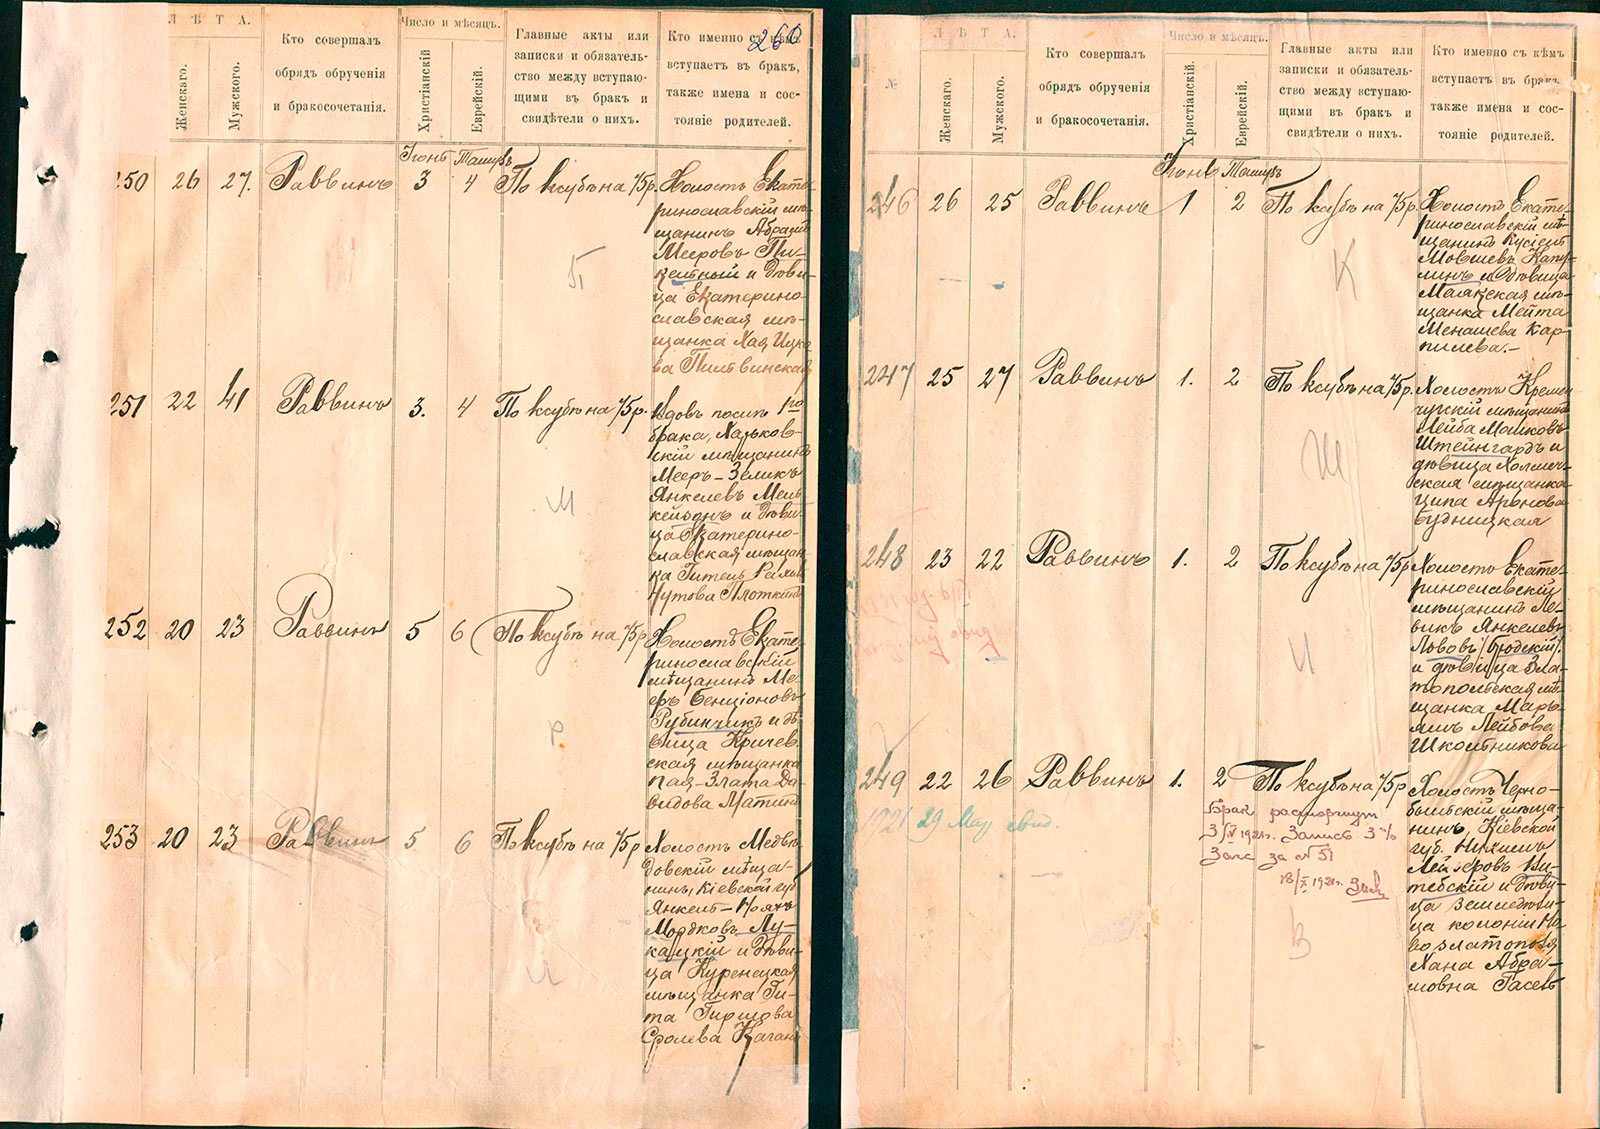 260
Л Ѣ Т А.
Женскаго.
Мужского.
Кто совершалъ
обрядъ обрученія
и бракосочетанія.
Число и мѣсяцъ.
Христіанскій
Еврейскій.
Главные акты или
записки и обязатель-
ство между вступаю-
щими въ бракъ и
свидѣтели о нихъ.
Кто именно съ кѣмъ
вступаетъ въ бракъ,
также имена и сос-
тояніе родителей.
Іюнь Тамузъ
250 26 27. Раввинъ 3 4 По ксубѣ на 75 р.
Холостъ Екате-
ринославскій мѣ-
щанинъ Абрамъ
Мееровъ Пи-
кентный и дѣви-
ца Екатерино-
славская мѣ-
щанка Хая Ицко-
ва
П
251 22 41 Раввинъ 3. 4 По ксубѣ на 75 р.
Вдовъ послѣ 1го
брака, Харьков-
скій мѣщанинъ
Мееръ-Зеликъ
Янкелевъ Мень-
кейзонъ и дѣви-
ца Екатерино-
славская мѣщан-
ка Гитель Рахми-
Плоткина
М
252 20 23 Раввинъ 5 6 По ксубѣ на 75 р.
Холостъ Екате-
ринославскій
мѣщанинъ Ме-
еръ Бенціоновъ
Рубинчикъ и дѣ-
вица Кричев-
ская мѣщанка
Пая-Злата Да-
видова Матина
Р
253 20 23 Раввинъ 5 6 По ксубѣ на 75 р
Холостъ Медвѣ-
довскій мѣща-
нинъ, Кіевской губ
Янкель-
Мордковъ Лу-
кацкій и дѣви-
ца Куренецкая
мѣщанка Ги-
та Гиршова
Сролева Каганъ
Л
№
Л Ѣ Т А.
Женскаго.
Мужского.
Кто совершалъ
обрядъ обрученія
и бракосочетанія.
Число и мѣсяцъ.
Христіанскій.
Еврейскій.
Главные акты или
записки и обязатель-
ство между вступаю-
щими въ бракъ и
свидѣтели о нихъ.
Кто именно съ кѣмъ
вступаетъ въ бракъ,
также имена и сос-
тояніе родителей.
Іюнь Тамузъ
246 26 25 Раввинъ 1 2 По ксубѣ на 75 р.
Холостъ Екате-
ринославскій мѣ-
щанинъ Кусіель
Мовшевъ Капу-
линъ и дѣвица
Маякская мѣ-
щанка Мейта
Менашева Кар-
пилева.-
К
247 25 27 Раввинъ 1. 2 По ксубѣ на 75 р.
Холостъ Кремен-
чугскій мѣщанинъ
Лейба Манковъ
Штейнгардъ и
дѣвица Холмеч-
ская мѣщанка
Ципа Аронова
Будницкая
Ш
248 23 22 Раввинъ 1. 2 По ксубѣ на 75 р
Холостъ Екате-
ринославскій
мѣщанинъ Ле-
викъ Янкелевъ
Лововъ (Бродскій)
и дѣвица Зла-
топольская мѣ-
щанка Марь-
ямъ Лейбова
Школьникова
Л
249 22 26 Раввинъ 1. 2 По ксубѣ на 75 р
Холостъ Черно-
быльскій мѣща-
нинъ, Кіевской
губ. Нихимъ
Лейзеровъ Ви-
тебскій и дѣви-
ца земледѣли-
ца колоніи Но-
возлатополя
Хана Абра-
мовна Гасель
1921 29 Мая свид.
Брак расторгнут
3/V 1921г. Запись 3 %
Загс за № 51
18/X 1921г.
В